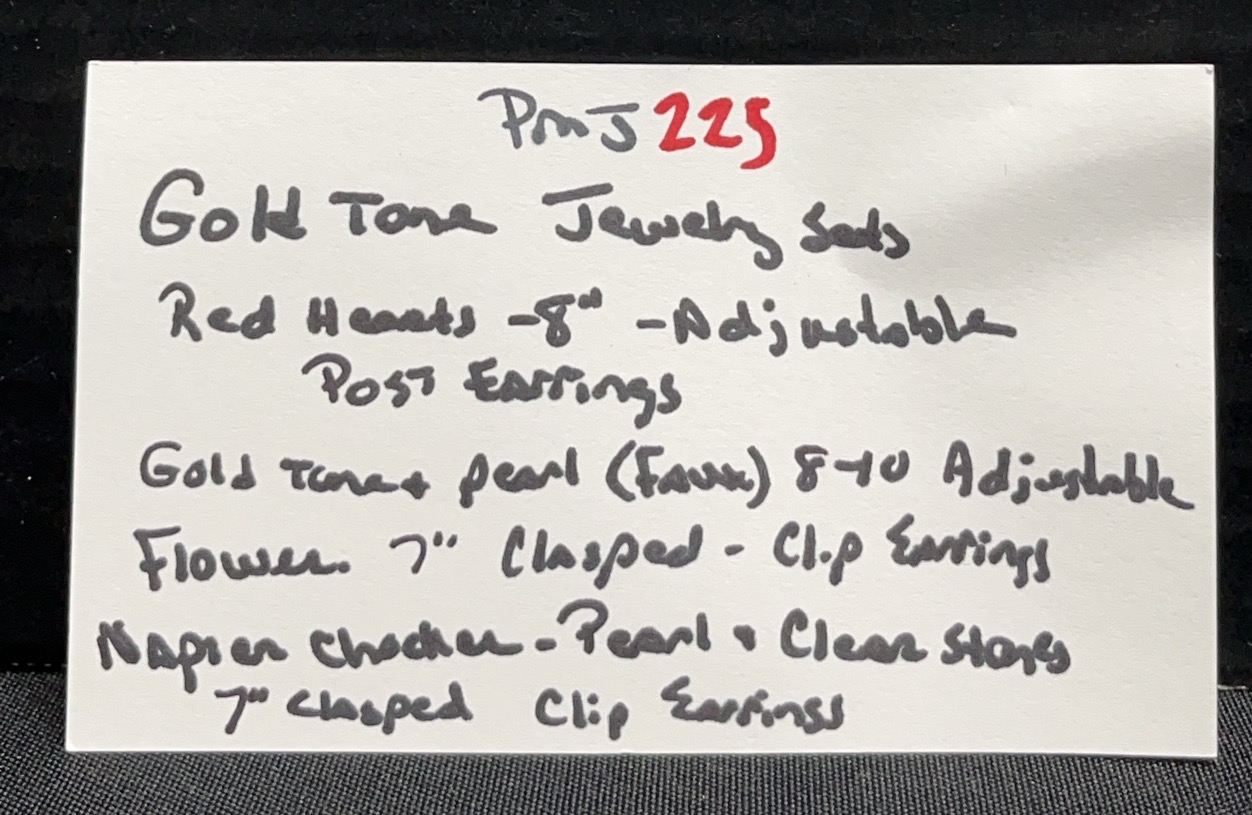 PMJ 225
Gold Tone Jewelry Sets
Red Hearts - 8" - Adjustable
Post Earrings
Gold Tone + pearl (Faux) 8-10 Adjustable
Flower. 7" Clasped - Clip Earrings
Napier Chocker - Pearl + Clear Stones
7" Clasped Clip Earrings